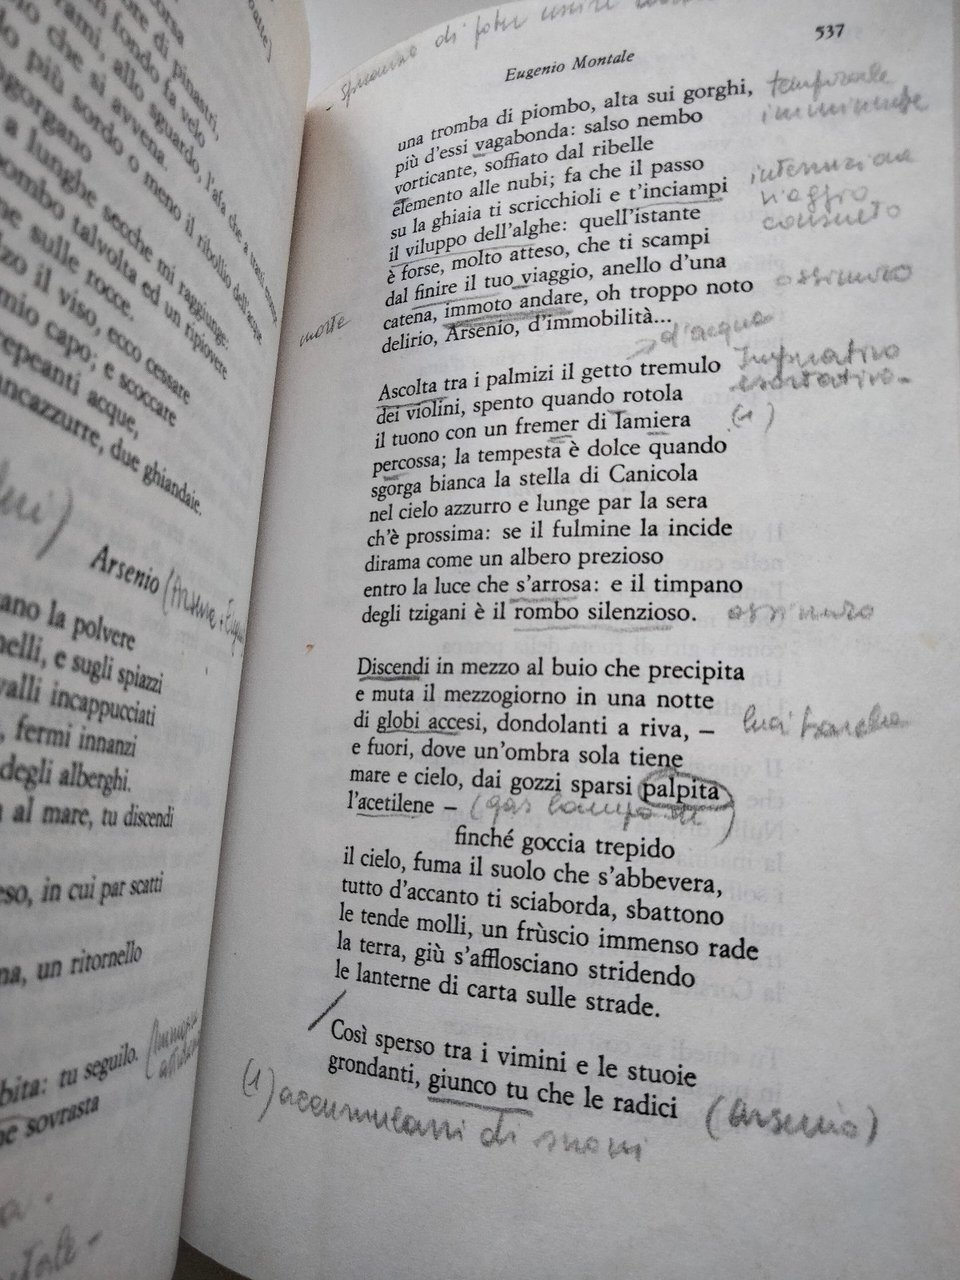 fondo fa velo
allo sguardo, l'afa che a tratti
che si avvena.
più sordo o meno il ribollio dell'acque
a lunghe secche mi raggiunge:
talvolta ed un ripiovere
sulle rocce.
il viso, ecco cessare
mio capo; e scoccare
acque,
due ghiandaie.
Arsenio
la polvere
e sugli spiazzi
incappucciati
fermi innanzi
degli alberghi.
al mare, tu discendi
in cui par scatti
un ritornello
tu seguilo.
sovrasta
537
di poter uscire
Eugenio Montale
una tromba di piombo, alta sui gorghi, temporale
più d'essi vagabonda: salso nembo imminente
vorticante, soffiato dal ribelle
elemento alle nubi; fa che il passo interruzione
su la ghiaia ti scricchioli e t'inciampi viaggio
il viluppo dell'alghe: quell'istante consueto
è forse, molto atteso, che ti scampi
dal finire il tuo viaggio, anello d'una ossimoro
catena, immoto andare, oh troppo noto
morte
delirio, Arsenio, d'immobilità...
d'acqua
Ascolta tra i palmizi il getto tremulo Imperativo
dei violini, spento quando rotola esortativo
il tuono con un fremer di lamiera (1)
percossa; la tempesta è dolce quando
sgorga bianca la stella di Canicola
nel cielo azzurro e lunge par la sera
ch'è prossima: se il fulmine la incide
dirama come un albero prezioso
entro la luce che s'arrosa: e il timpano
degli tzigani è il rombo silenzioso. ossimoro
Discendi in mezzo al buio che precipita
e muta il mezzogiorno in una notte
di globi accesi, dondolanti a riva, – luci barche
e fuori, dove un'ombra sola tiene
mare e cielo, dai gozzi sparsi palpita
l'acetilene – (gas
finché goccia trepido
il cielo, fuma il suolo che s'abbevera,
tutto d'accanto ti sciaborda, sbattono
le tende molli, un frùscio immenso rade
la terra, giù s'afflosciano stridendo
le lanterne di carta sulle strade.
Così sperso tra i vimini e le stuoie
grondanti, giunco tu che le radici (Arsenio)
(1) accumularsi di suoni